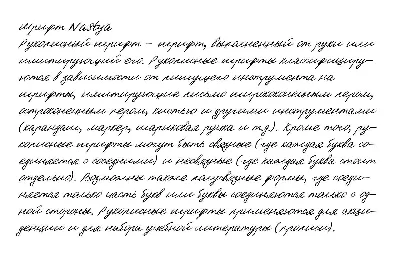 Шрифт Nastya
Рукописный шрифт – шрифт, выполненный от руки или
имитирующий его. Рукописные шрифты классифициру-
ются в зависимости от пишущего инструмента на
шрифты, имитирующие письмо ширококонечным пером,
остроконечным пером, кистью и другими инструментами
(карандаш, маркер, шариковая ручка и т.д). Кроме того, ру-
кописные шрифты могут быть связные (где каждая буква со-
единяется с соседними) и несвязные (где каждая буква стоит
отдельно). Возможны также полусвязные формы, где соеди-
няется только часть букв или буквы соединяются только с од-
ной стороны. Рукописные шрифты применяются для акци-
денции и для набора учебной литературы (прописи).